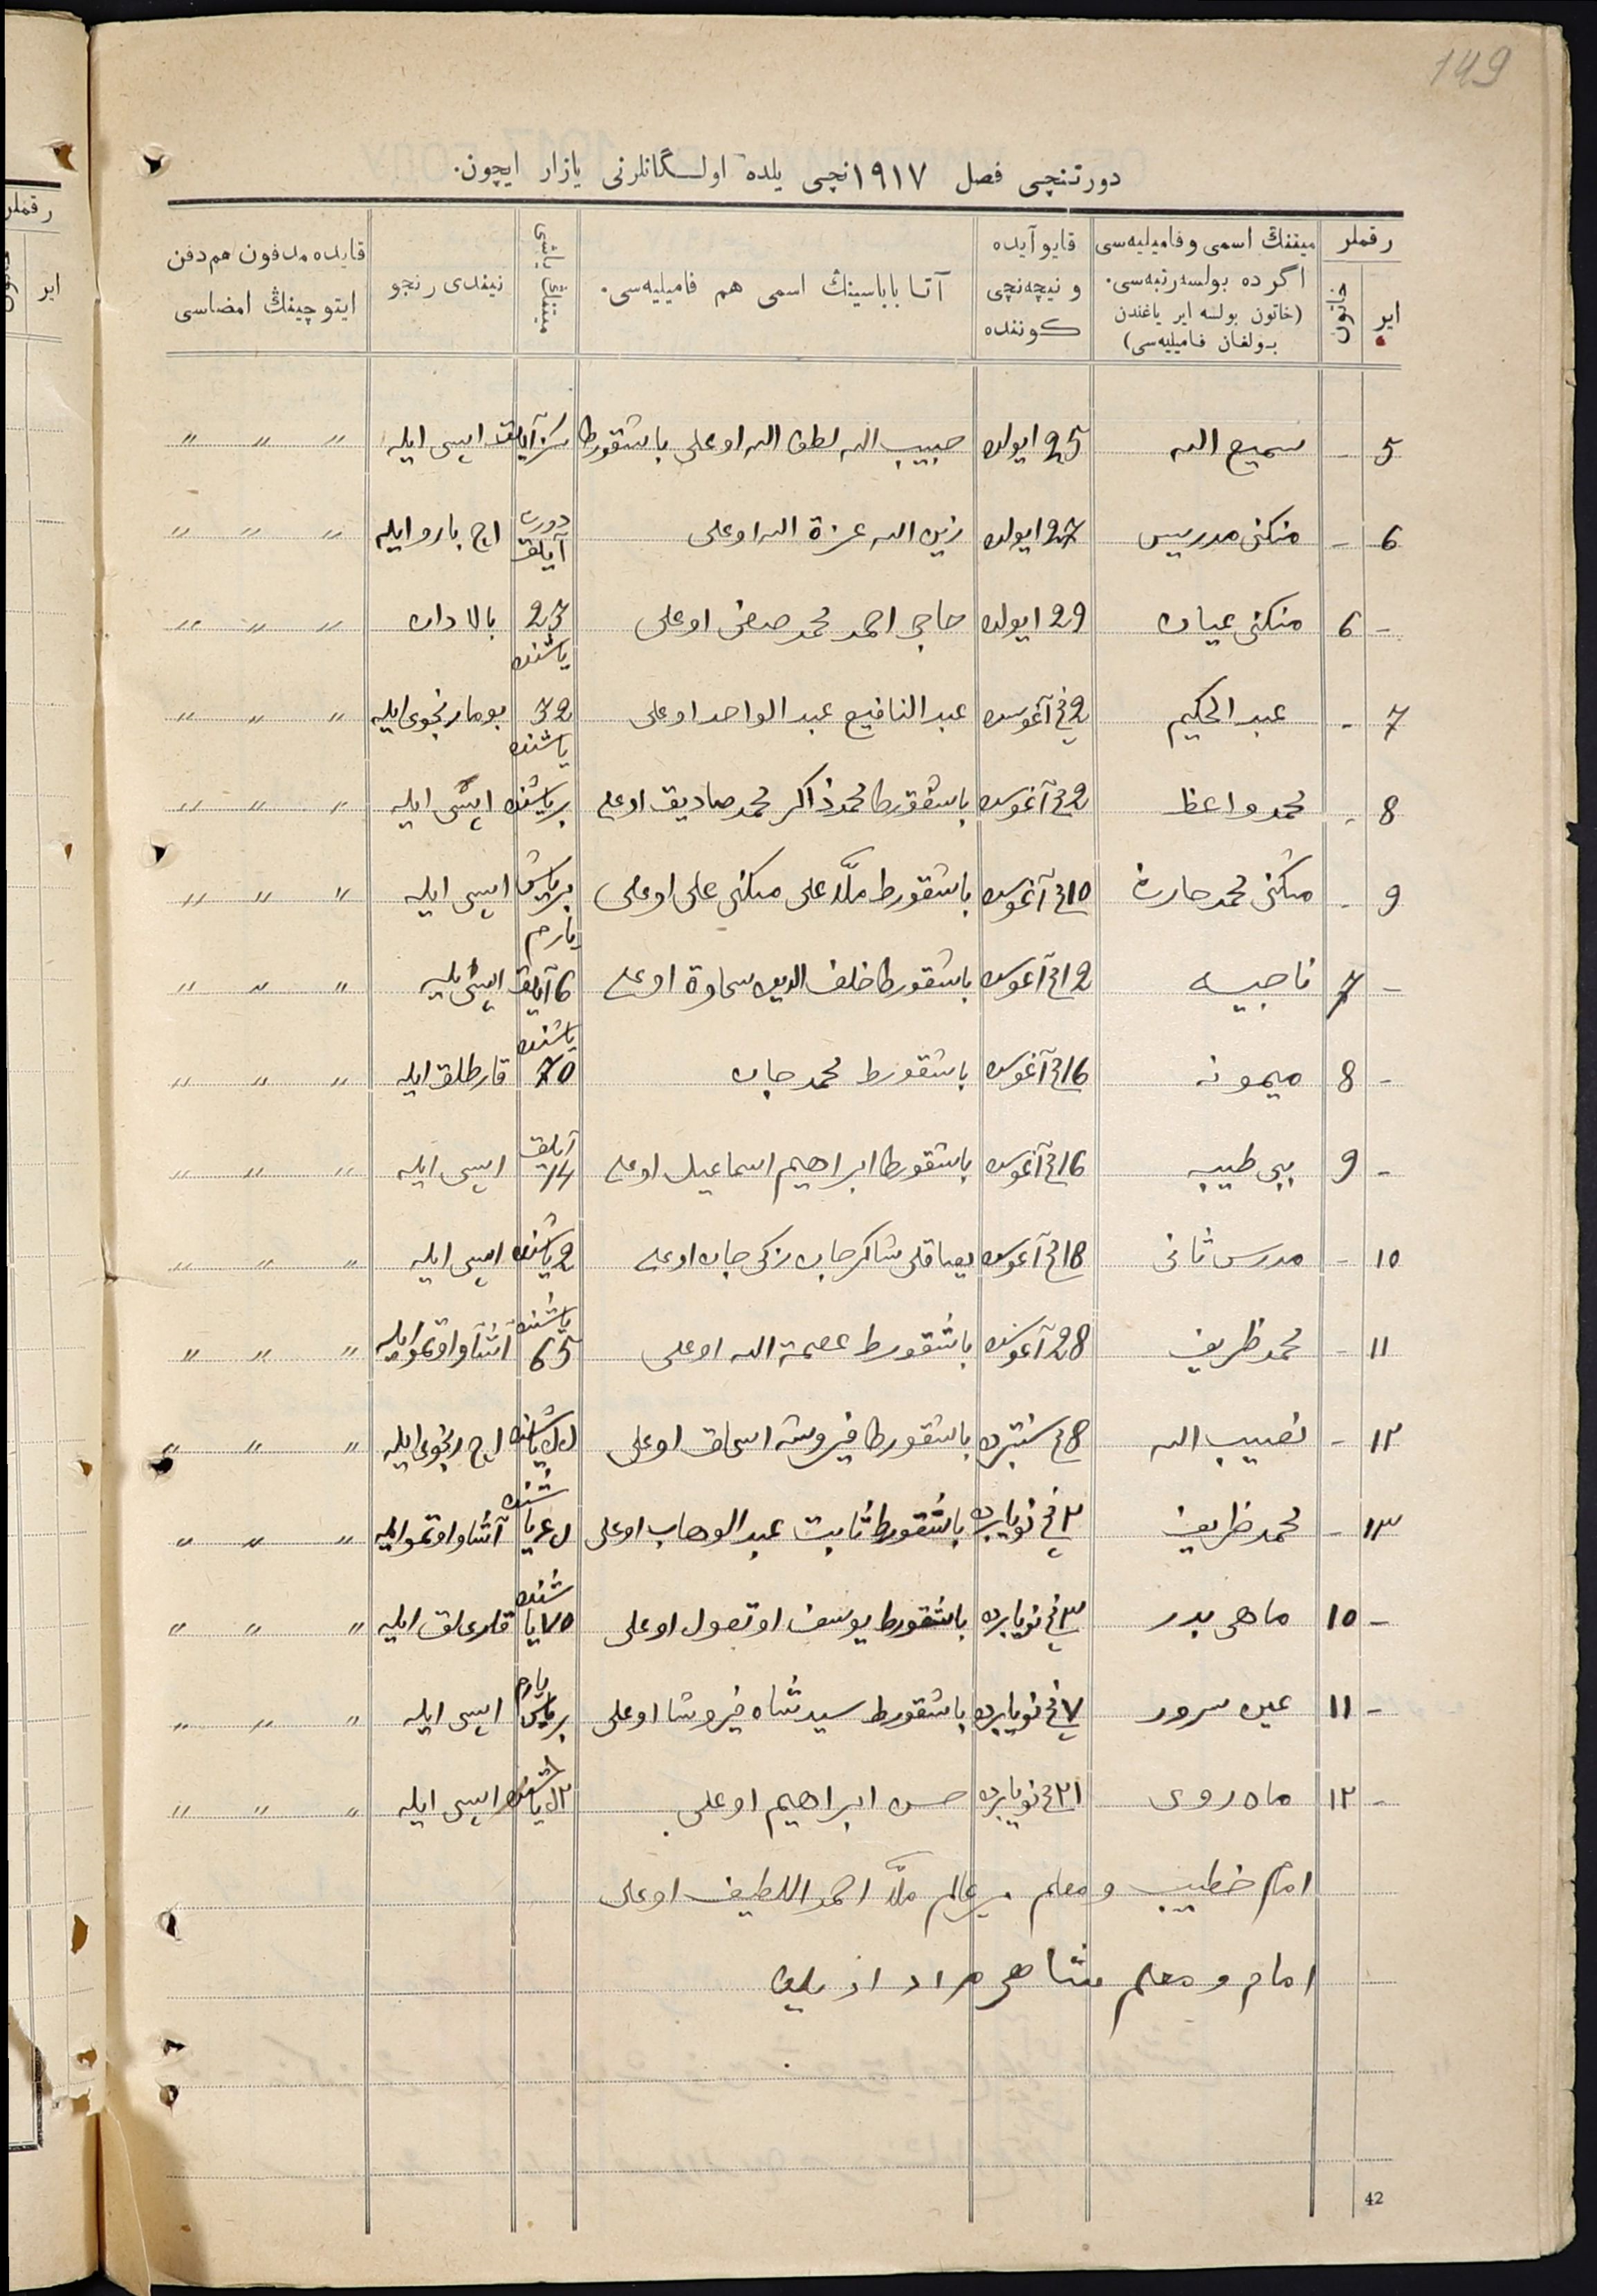 149
دورتنچی فصل ١٩١٧نچی یلده اولـگانلرنی یازار ایچون.
رقملر
ایر
خاتون
میتنڭ اسمی و فامیلیه‌سی اگرده بولسه رتبه‌سی. (خاتون بولسه ایر یاغندن بولغان فامیلیه‌سی)
قایو آیده و نیچه‌نچی کوننده
آتا باباسینڭ اسمی هم فامیلیه‌سی.
میتنڭ یاشی
نیندی رنجو
قایده مدفون هم دفن ایتوچینڭ امضاسی
5 - سمیع الله 25 ایولده حبیب الله لطف الله اوغلی باشقورط سکز آیلق ایسی ایله " " "
6 - منکنی مدریس 27 ایولده زین الله عزة الله اوغلی دورت آیلق اچ بارو ایله " " "
- 6 منکنی عیان 29 ایولده حاجی احمد محمد صفی اوغلی 23 یاشنده بالادان " " "
7 - عبد الحکیم 2نچی آغوسده عبد النافیع عبد الواحد اوغلی 32 یاشنده بوما رنجوی ایله " " "
8 - محمد واعظ 2نچی آغوسده باشقورط محمد ذاکر محمد صادیق اوغلی بر یاشنده ایسی ایله " " "
9 - منکنی محمد حارث 10نچی آغوسده باشقورط ملّا علی منکنی علی اوغلی بر یاش یارم ایسی ایله " " "
- 7 ناجیه 12نچی آغوسده باشقورط خلف الدین سخاوة اوغلی 6 آیلق ایسی ایله " " "
- 8 میمونه 16نچی آغوسده باشقورط محمد جان 70 یاشنده قارطلق ایله " " "
- 9 بیبی طیبه 16نچی آغوسده باشقورط ابراهیم اسماعیل اوغلی 14 آیلق ایسی ایله " " "
10 - مدرس ثانی 18نچی آغوسده شاکر جان زکی جان اوغلی 2 یاشنده ایسی ایله " " "
11 - محمد ظریف 28 آغوسده باشقورط عصمة الله اوغلی 65 یاشنده ایله " " "
١٢ - نصیب الله 8نچی سنتبرده باشقورط فیروشه اسحاق اوغلی یاشنده اچ رنجوی ایله " " "
١٣ - محمد ظریف ٢نچی نویابرده باشقورط ثابت عبد الوهاب اوغلی یاشنده ایله " " "
- ١٥ ماهی بدر ٣نچی نویابرده باشقورط یوسف اوتصول اوغلی ٧٥ یاشنده قارطلق ایله " " "
- ١١ عین سرور ٧نچی نویابرده باشقورط سید شاه فیروشا اوغلی بر یاش یارم ایسی ایله " " "
- ١٢ ماه روی ٢١نچی نویابرده حسن ابراهیم اوغلی یاشنده ایسی ایله " " "
امام خطیب و معلم میر عالم ملّا احمد اللطیف اوغلی
امام و معلم شاهی مراد
42